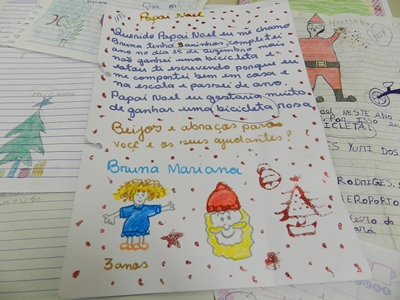 Papai Noel
Querido Papai Noel eu me chamo
Bruna tenho 3 aninhos, completei
ano no dia 12 de dezembro mais
não ganhei uma bicicleta
estou te escrevendo porque eu
me comportei bem em casa e
na escola e passei de ano.
Papai Noel eu gostaria muito
de ganhar uma bicicleta rosa
Beijos e abraços para
você e os seus ajudantes!
Bruna Mariana
3 anos
NESTE ANO